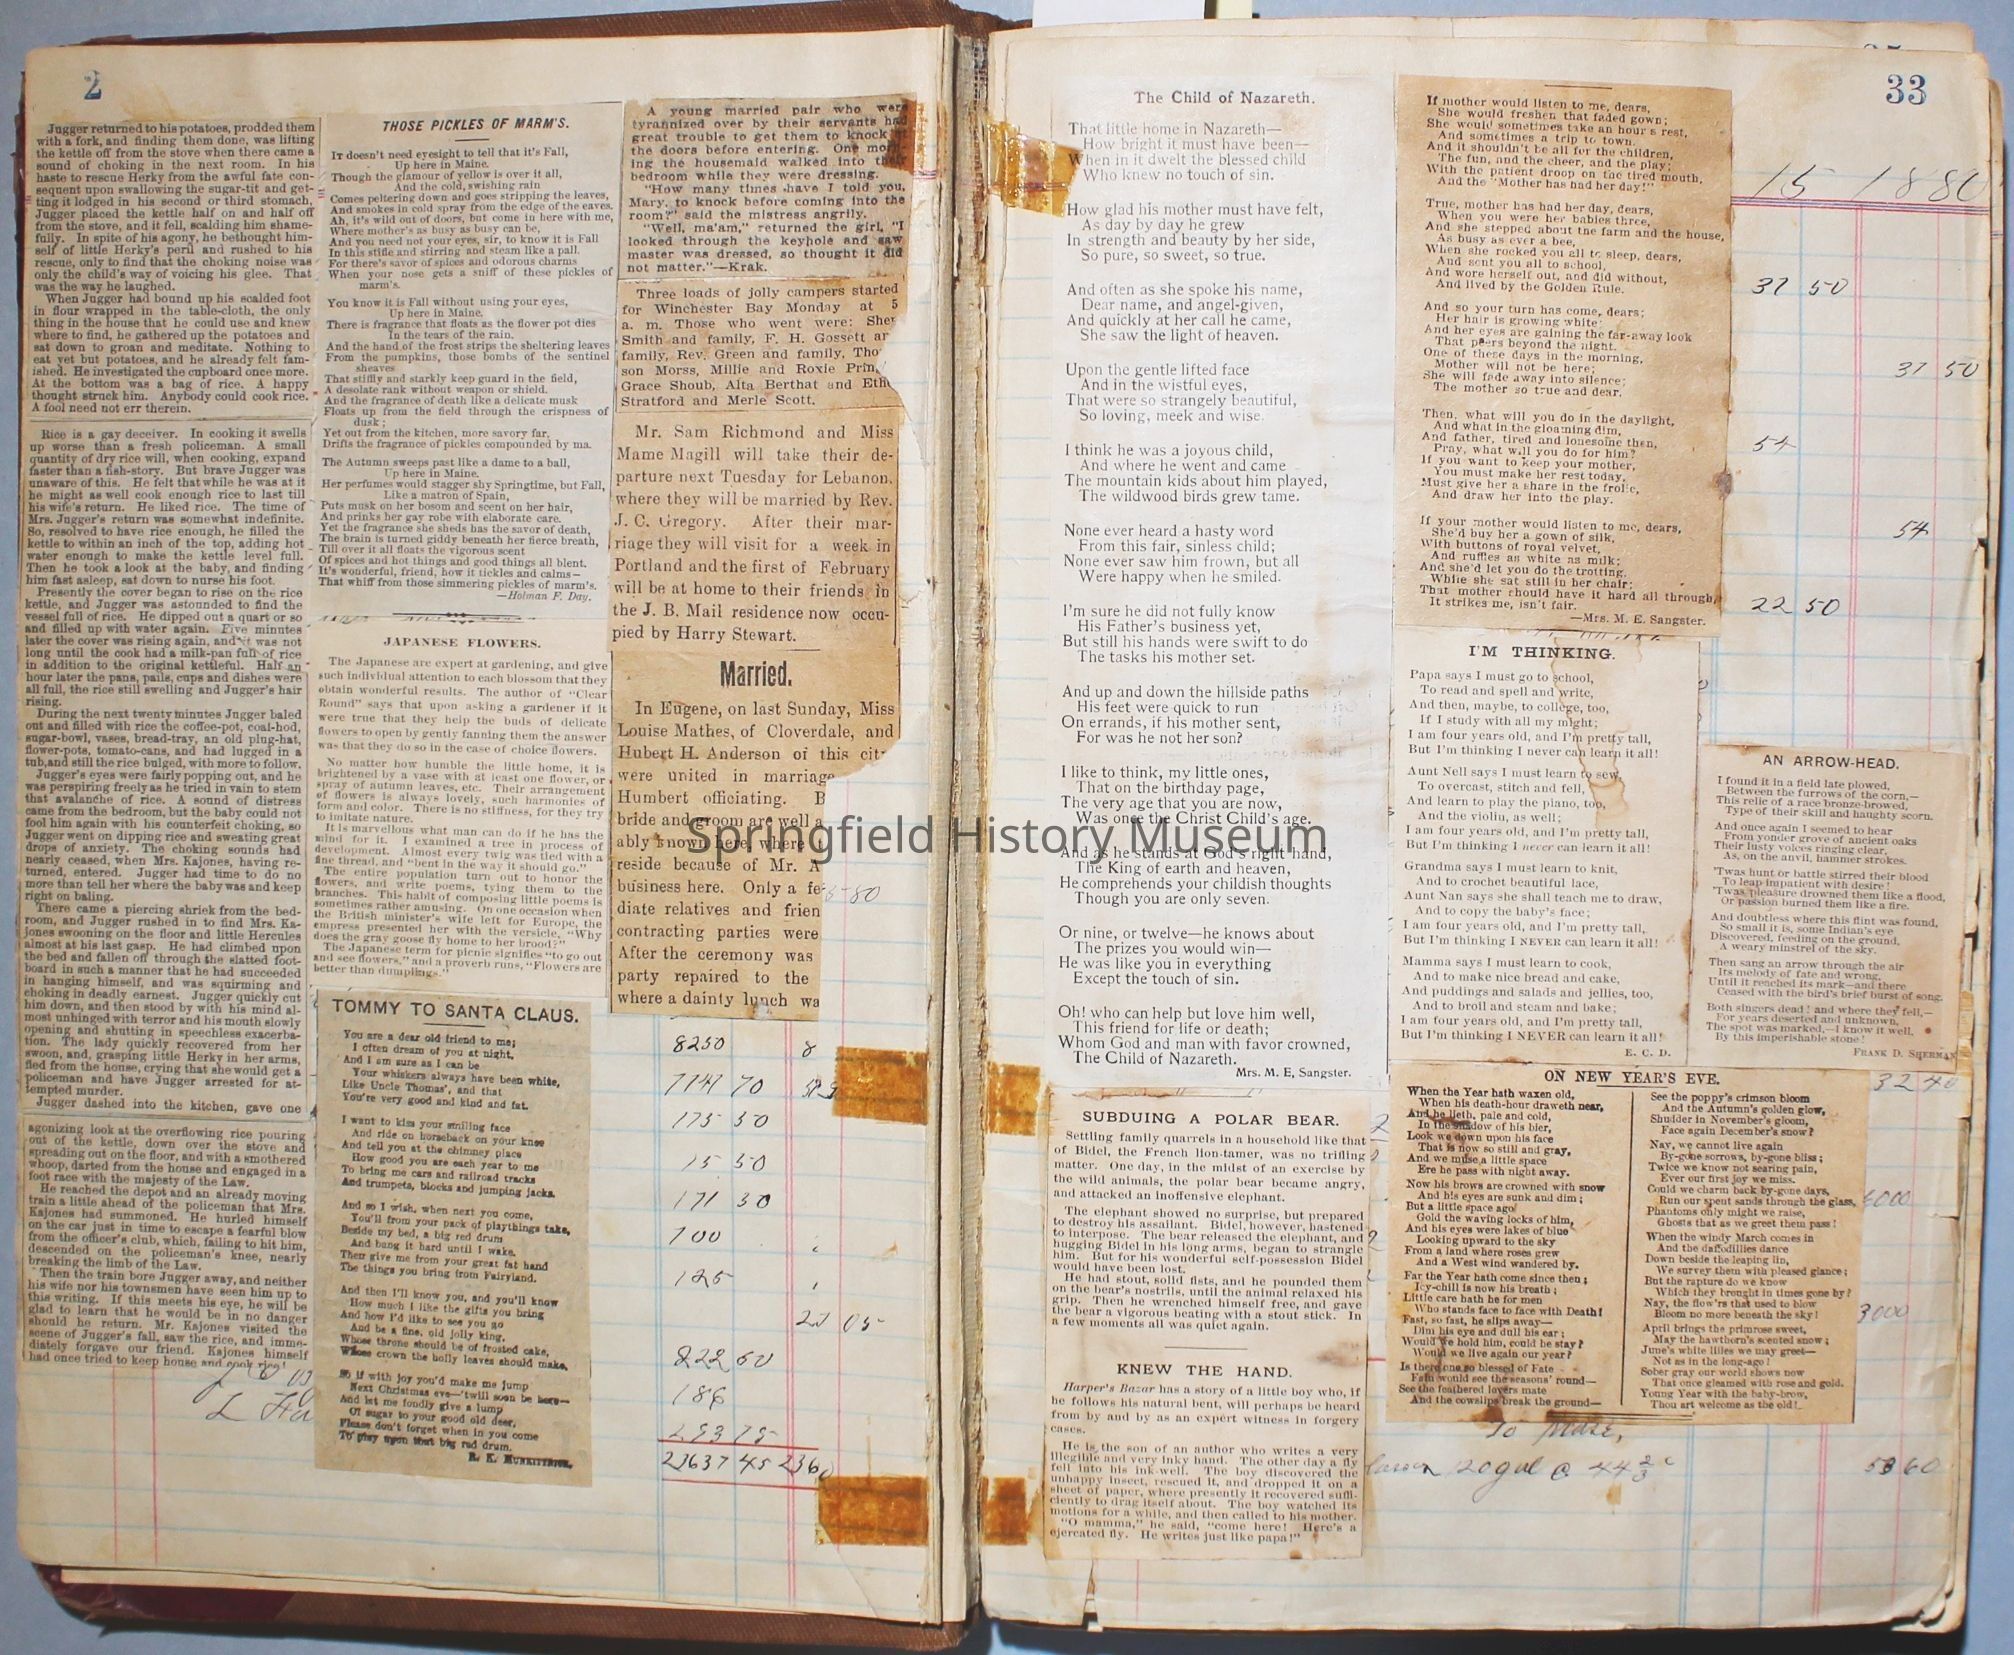 2
Jugger returned to his potatoes, prodded them
with a fork, and finding them done, was lifting
the kettle off from the stove when there came a
sound of choking in the next room. In his
haste to rescue Herky from the awful fate con-
sequent upon swallowing the sugar-tit and get-
ting it lodged in his second or third stomach,
Jugger placed the kettle half on and half off
from the stove, and it fell, scalding him shame-
fully. In spite of his agony, he bethought him-
self of little Herky's peril and rushed to his
rescue, only to find that the choking noise was
only the child's way of voicing his glee. That
was the way he laughed.
When Jugger had bound up his scalded foot
in flour wrapped in the table-cloth, the only
thing in the house that he could use and knew
where to find, he gathered up the potatoes and
sat down to groan and meditate. Nothing to
eat yet but potatoes, and he already felt fam-
ished. He investigated the cupboard once more.
At the bottom was a bag of rice. A happy
thought struck him. Anybody could cook rice.
A fool need not err therein.
Rice is a gay deceiver. In cooking it swells
up worse than a fresh policeman. A small
quantity of dry rice will, when cooking, expand
faster than a fish-story. But brave Jugger was
unaware of this. He felt that while he was at it
he might as well cook enough rice to last till
his wife's return. He liked rice. The time of
Mrs. Jugger's return was somewhat indefinite.
So, resolved to have rice enough, he filled the
kettle to within an inch of the top, adding hot
water enough to make the kettle level full.
Then he took a look at the baby, and finding
him fast asleep, sat down to nurse his foot.
Presently the cover began to rise on the rice
kettle, and Jugger was astounded to find the
vessel full of rice. He dipped out a quart or so
and filled up with water again. Five minutes
later the cover was rising again, and it was not
long until the cook had a milk-pan full of rice
in addition to the original kettleful. Half an
hour later the pans, pails, cups and dishes were
all full, the rice still swelling and Jugger's hair
rising.
During the next twenty minutes Jugger baled
out and filled with rice the coffee-pot, coal-hod,
sugar-bowl, vases, bread-tray, an old plug-hat,
flower-pots, tomato-cans, and had lugged in a
tub, and still the rice bulged, with more to follow.
Jugger's eyes were fairly popping out, and he
was perspiring freely as he tried in vain to stem
that avalanche of rice. A sound of distress
came from the bedroom, but the baby could not
fool him again with his counterfeit choking, so
Jugger went on dipping rice and sweating great
drops of anxiety. The choking sounds had
nearly ceased, when Mrs. Kajones, having re-
turned, entered. Jugger had time to do no
more than tell her where the baby was and keep
right on baling.
There came a piercing shriek from the bed-
room, and Jugger rushed in to find Mrs. Ka-
jones swooning on the floor and little Hercules
almost at his last gasp. He had climbed upon
the bed and fallen off through the slatted foot-
board in such a manner that he had succeeded
in hanging himself, and was squirming and
choking in deadly earnest. Jugger quickly cut
him down, and then stood by with his mind al-
most unhinged with terror and his mouth slowly
opening and shutting in speechless exacerba-
tion. The lady quickly recovered from her
swoon, and, grasping little Herky in her arms,
fled from the house, crying that she would get a
policeman and have Jugger arrested for at-
tempted murder.
Jugger dashed into the kitchen, gave one
agonizing look at the overflowing rice pouring
out of the kettle, down over the stove and
spreading out on the floor, and with a smothered
whoop, darted from the house and engaged in a
foot race with the majesty of the Law.
He reached the depot and an already moving
train a little ahead of the policeman that Mrs.
Kajones had summoned. He hurled himself
on the car just in time to escape a fearful blow
from the officer's club, which, failing to hit him,
descended on the policeman's knee, nearly
breaking the limb of the Law.
Then the train bore Jugger away, and neither
his wife nor his townsmen have seen him up to
this writing. If this meets his eye, he will be
glad to learn that he would be in no danger
should he return. Mr. Kajones visited the
scene of Jugger's fall, saw the rice, and imme-
diately forgave our friend. Kajones himself
had once tried to keep house and cook rice!
THOSE PICKLES OF MARM'S.
It doesn't need eyesight to tell that it's Fall,
Up here in Maine.
Though the glamour of yellow is over it all,
And the cold, swishing rain
Comes peltering down and goes stripping the leaves,
And smokes in cold spray from the edge of the eaves.
Ah, it's wild out of doors, but come in here with me,
Where mother's as busy as busy can be,
And you need not your eyes, sir, to know it is Fall
In this stifle and stirring and steam like a pall.
For there's savor of spices and odorous charms
When your nose gets a sniff of these pickles of
marm's.
You know it is Fall without using your eyes,
Up here in Maine.
There is fragrance that floats as the flower pot dies
In the tears of the rain.
And the hand of the frost strips the sheltering leaves
From the pumpkins, those bombs of the sentinel
sheaves
That stiffly and starkly keep guard in the field,
A desolate rank without weapon or shield.
And the fragrance of death like a delicate musk
Floats up from the field through the crispness of
dusk;
Yet out from the kitchen, more savory far,
Drifts the fragrance of pickles compounded by ma.
The Autumn sweeps past like a dame to a ball,
Up here in Maine.
Her perfumes would stagger shy Springtime, but Fall,
Like a matron of Spain,
Puts musk on her bosom and scent on her hair,
And prinks her gay robe with elaborate care.
Yet the fragrance she sheds has the savor of death,
The brain is turned giddy beneath her fierce breath,
Till over it all floats the vigorous scent
Of spices and hot things and good things all blent.
It's wonderful, friend, how it tickles and calms—
That whiff from those simmering pickles of marm's.
—Holman F. Day.
JAPANESE FLOWERS.
The Japanese are expert at gardening, and give
such individual attention to each blossom that they
obtain wonderful results. The author of "Clear
Round" says that upon asking a gardener if it
were true that they help the buds of delicate
flowers to open by gently fanning them the answer
was that they do so in the case of choice flowers.
No matter how humble the little home, it is
brightened by a vase with at least one flower, or
spray of autumn leaves, etc. Their arrangement
of flowers is always lovely, such harmonies of
form and color. There is no stiffness, for they try
to imitate nature.
It is marvellous what man can do if he has the
mind for it. I examined a tree in process of
development. Almost every twig was tied with a
fine thread, and "bent in the way it should go."
The entire population turn out to honor the
flowers, and write poems, tying them to the
branches. This habit of composing little poems is
sometimes rather amusing. On one occasion when
the British minister's wife left for Europe, the
empress presented her with the versicle, "Why
does the gray goose fly home to her brood?"
The Japanese term for picnic signifies "to go out
and see flowers," and a proverb runs, "Flowers are
better than dumplings."
TOMMY TO SANTA CLAUS.
You are a dear old friend to me;
I often dream of you at night,
And I am sure as I can be
Your whiskers always have been white,
Like Uncle Thomas', and that
You're very good and kind and fat.
I want to kiss your smiling face
And ride on horseback on your knee
And tell you at the chimney place
How good you are each year to me
To bring me cars and railroad tracks
And trumpets, blocks and jumping jacks.
And so I wish, when next you come,
You'll from your pack of playthings take,
Beside my bed, a big red drum
And bang it hard until I wake.
Then give me from your great fat hand
The things you bring from Fairyland.
And then I'll know you, and you'll know
How much I like the gifts you bring
And how I'd like to see you go
And be a fine, old jolly king,
Whose throne should be of frosted cake,
Whose crown the holly leaves should make.
So if with joy you'd make me jump
Next Christmas eve—'twill soon be here—
And let me fondly give a lump
Of sugar to your good old deer,
Please don't forget when in you come
To play upon that big red drum.
R. K. MUNKITTRICK.
A young married pair who were
tyrannized over by their servants had
great trouble to get them to knock at
the doors before entering. One morn-
ing the housemaid walked into their
bedroom while they were dressing.
"How many times have I told you,
Mary, to knock before coming into the
room?" said the mistress angrily.
"Well, ma'am," returned the girl, "I
looked through the keyhole and saw
master was dressed, so thought it did
not matter."—Krak.
Three loads of jolly campers started
for Winchester Bay Monday at 5
a. m. Those who went were: Sher
Smith and family, F. H. Gossett an
family, Rev. Green and family, Tho
son Morss, Millie and Roxie Prin
Grace Shoub, Alta Berthat and Eth
Stratford and Merle Scott.
Mr. Sam Richmond and Miss
Mame Magill will take their de-
parture next Tuesday for Lebanon,
where they will be married by Rev.
J. C. Gregory. After their mar-
riage they will visit for a week in
Portland and the first of February
will be at home to their friends in
the J. B. Mail residence now occu-
pied by Harry Stewart.
Married.
In Eugene, on last Sunday, Miss
Louise Mathes, of Cloverdale, and
Hubert H. Anderson of this city
were united in marriage
Humbert officiating. B
bride and groom are well a
ably known here, where
reside because of Mr. A
business here. Only a fe
diate relatives and frien
contracting parties were
After the ceremony was
party repaired to the
where a dainty lunch wa
80
8250 8
7141 70
175 50
15 50
171 30
700
125
21 05
222 60
186
2637 45 2360
33
The Child of Nazareth.
That little home in Nazareth—
How bright it must have been—
When in it dwelt the blessed child
Who knew no touch of sin.
How glad his mother must have felt,
As day by day he grew
In strength and beauty by her side,
So pure, so sweet, so true.
And often as she spoke his name,
Dear name, and angel-given,
And quickly at her call he came,
She saw the light of heaven.
Upon the gentle lifted face
And in the wistful eyes,
That were so strangely beautiful,
So loving, meek and wise.
I think he was a joyous child,
And where he went and came
The mountain kids about him played,
The wildwood birds grew tame.
None ever heard a hasty word
From this fair, sinless child;
None ever saw him frown, but all
Were happy when he smiled.
I'm sure he did not fully know
His Father's business yet,
But still his hands were swift to do
The tasks his mother set.
And up and down the hillside paths
His feet were quick to run
On errands, if his mother sent,
For was he not her son?
I like to think, my little ones,
That on the birthday page,
The very age that you are now,
Was once the Christ Child's age.
And as he stands at God's right hand,
The King of earth and heaven,
He comprehends your childish thoughts
Though you are only seven.
Or nine, or twelve—he knows about
The prizes you would win—
He was like you in everything
Except the touch of sin.
Oh! who can help but love him well,
This friend for life or death;
Whom God and man with favor crowned,
The Child of Nazareth.
Mrs. M. E. Sangster.
SUBDUING A POLAR BEAR.
Settling family quarrels in a household like that
of Bidel, the French lion-tamer, was no trifling
matter. One day, in the midst of an exercise by
the wild animals, the polar bear became angry,
and attacked an inoffensive elephant.
The elephant showed no surprise, but prepared
to destroy his assailant. Bidel, however, hastened
to interpose. The bear released the elephant, and
hugging Bidel in his long arms, began to strangle
him. But for his wonderful self-possession Bidel
would have been lost.
He had stout, solid fists, and he pounded them
on the bear's nostrils, until the animal relaxed his
grip. Then he wrenched himself free, and gave
the bear a vigorous beating with a stout stick. In
a few moments all was quiet again.
KNEW THE HAND.
Harper's Bazar has a story of a little boy who, if
he follows his natural bent, will perhaps be heard
from by and by as an expert witness in forgery
cases.
He is the son of an author who writes a very
illegible and very inky hand. The other day a fly
fell into his ink-well. The boy discovered the
unhappy insect, rescued it, and dropped it on a
sheet of paper, where presently it recovered suffi-
ciently to drag itself about. The boy watched its
motions for a while, and then called to his mother.
"O mamma," he said, "come here! Here's a
ejercated fly. He writes just like papa!"
If mother would listen to me, dears,
She would freshen that faded gown;
She would sometimes take an hour's rest,
And sometimes a trip to town.
And it shouldn't be all for the children,
The fun, and the cheer, and the play;
With the patient droop on the tired mouth,
And the "Mother has had her day!"
True, mother has had her day, dears,
When you were her babies three,
And she stepped about the farm and the house,
As busy as ever a bee,
When she rocked you all to sleep, dears,
And sent you all to school,
And wore herself out, and did without,
And lived by the Golden Rule.
And so your turn has come, dears;
Her hair is growing white;
And her eyes are gaining the far-away look
That peers beyond the night.
One of these days in the morning,
Mother will not be here;
She will fade away into silence;
The mother so true and dear.
Then, what will you do in the daylight,
And what in the gloaming dim,
And father, tired and lonesome then,
Pray, what will you do for him?
If you want to keep your mother,
You must make her rest today,
Must give her a share in the frolic,
And draw her into the play.
If your mother would listen to me, dears,
She'd buy her a gown of silk,
With buttons of royal velvet,
And ruffles as white as milk;
And she'd let you do the trotting,
While she sat still in her chair;
That mother should have it hard all through,
It strikes me, isn't fair.
—Mrs. M. E. Sangster.
15 1880
37 50
37 50
54
54
22 50
I'M THINKING.
Papa says I must go to school,
To read and spell and write,
And then, maybe, to college, too,
If I study with all my might;
I am four years old, and I'm pretty tall,
But I'm thinking I never can learn it all!
Aunt Nell says I must learn to sew,
To overcast, stitch and fell,
And learn to play the piano, too,
And the violin, as well;
I am four years old, and I'm pretty tall,
But I'm thinking I never can learn it all!
Grandma says I must learn to knit,
And to crochet beautiful lace,
Aunt Nan says she shall teach me to draw,
And to copy the baby's face;
I am four years old, and I'm pretty tall,
But I'm thinking I NEVER can learn it all!
Mamma says I must learn to cook,
And to make nice bread and cake,
And puddings and salads and jellies, too,
And to broil and steam and bake;
I am four years old, and I'm pretty tall,
But I'm thinking I NEVER can learn it all!
E. C. D.
AN ARROW-HEAD.
I found it in a field late plowed,
Between the furrows of the corn,—
This relic of a race bronze-browed,
Type of their skill and haughty scorn.
And once again I seemed to hear
From yonder grove of ancient oaks
Their lusty voices ringing clear,
As, on the anvil, hammer strokes.
'Twas hunt or battle stirred their blood
To leap impatient with desire!
'Twas pleasure drowned them like a flood,
Or passion burned them like a fire.
And doubtless where this flint was found,
So small it is, some Indian's eye
Discovered, feeding on the ground,
A weary minstrel of the sky.
Then sang an arrow through the air
Its melody of fate and wrong,
Until it reached its mark—and there
Ceased with the bird's brief burst of song.
Both singers dead! and where they fell,—
For years deserted and unknown,
The spot was marked,—I know it well,
By this imperishable stone!
FRANK D. SHERMAN
32 40
ON NEW YEAR'S EVE.
When the Year hath waxen old,
When his death-hour draweth near,
And he lieth, pale and cold,
In the shadow of his bier,
Look we down upon his face
That is now so still and gray,
And we muse a little space
Ere he pass with night away.
Now his brows are crowned with snow
And his eyes are sunk and dim;
But a little space ago
Gold the waving locks of him,
And his eyes were lakes of blue
Looking upward to the sky
From a land where roses grew
And a West wind wandered by.
Far the Year hath come since then;
Icy-chill is now his breath;
Little care hath he for men
Who stands face to face with Death!
Fast, so fast, he slips away—
Dim his eye and dull his ear;
Would we hold him, could he stay?
Would we live again our year?
Is there one so blessed of Fate
Fain would see the seasons' round—
See the feathered lovers mate
And the cowslips break the ground—
See the poppy's crimson bloom
And the Autumn's golden glow,
Shudder in November's gloom,
Face again December's snow?
Nay, we cannot live again
By-gone sorrows, by-gone bliss;
Twice we know not searing pain,
Ever our first joy we miss.
Could we charm back by-gone days,
Run our spent sands through the glass,
Phantoms only might we raise,
Ghosts that as we greet them pass!
When the windy March comes in
And the daffodillies dance
Down beside the leaping lin,
We survey them with pleased glance;
But the rapture do we know
Which they brought in times gone by?
Nay, the flow'rs that used to blow
Bloom no more beneath the sky!
April brings the primrose sweet,
May the hawthorn's scented snow;
June's white lilies we may greet—
Not as in the long-ago!
Sober gray our world shows now
That once gleamed with rose and gold.
Young Year with the baby-brow,
Thou art welcome as the old!
6000
3000
To Mdse,
120 gal @ 44 2/3 c 53 60
Springfield History Museum